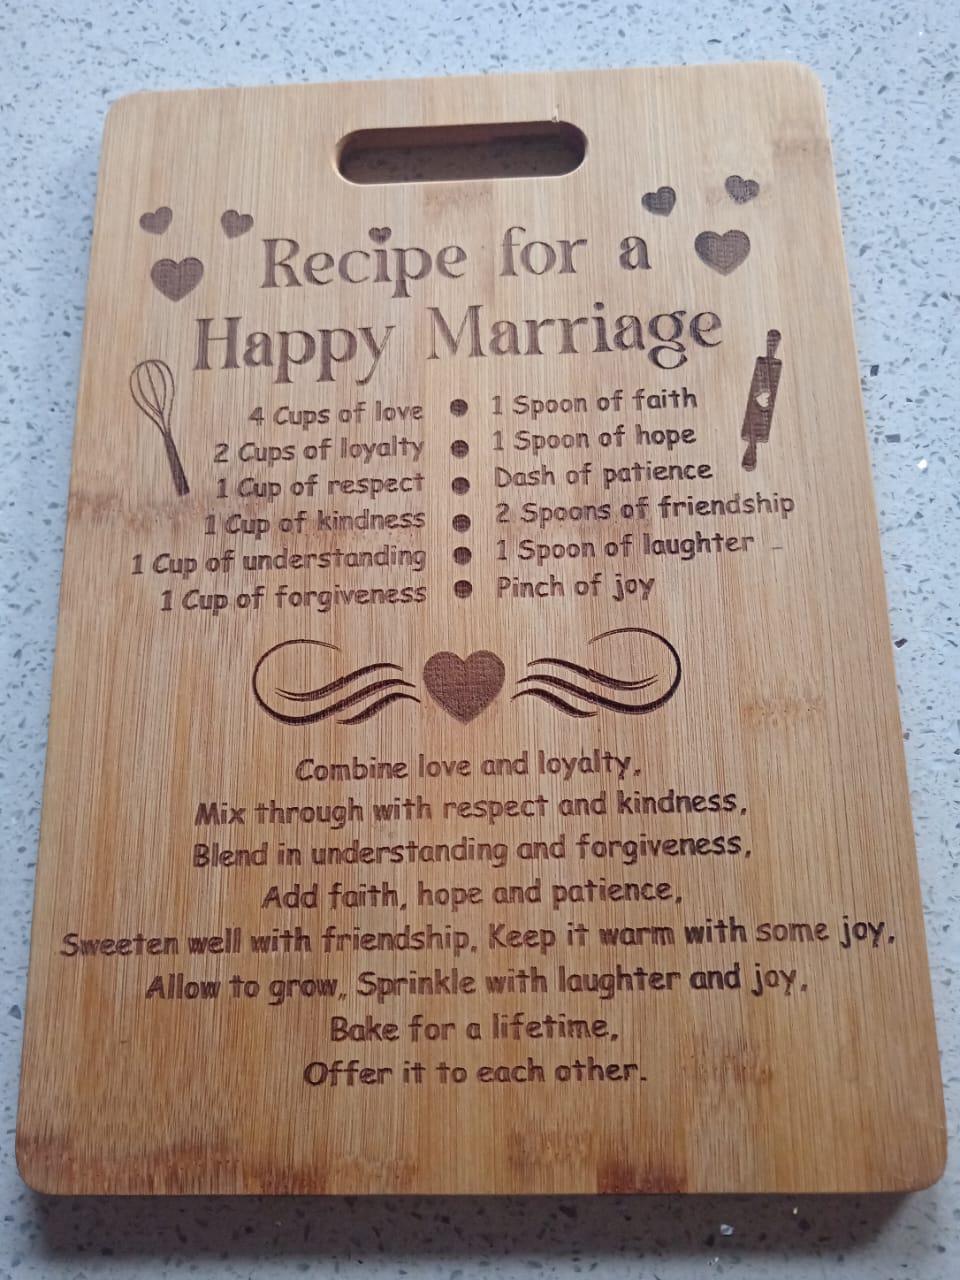 Recipe for a
Happy Marriage
4 Cups of love
2 Cups of loyalty
1 Cup of respect
1 Cup of kindness
1 Cup of understanding
1 Cup of forgiveness
1 Spoon of faith
1 Spoon of hope
Dash of patience
2 Spoons of friendship
1 Spoon of laughter
Pinch of joy
Combine love and loyalty,
Mix through with respect and kindness,
Blend in understanding and forgiveness,
Add faith, hope and patience,
Sweeten well with friendship, Keep it warm with some joy,
Allow to grow,, Sprinkle with laughter and joy,
Bake for a lifetime,
Offer it to each other.